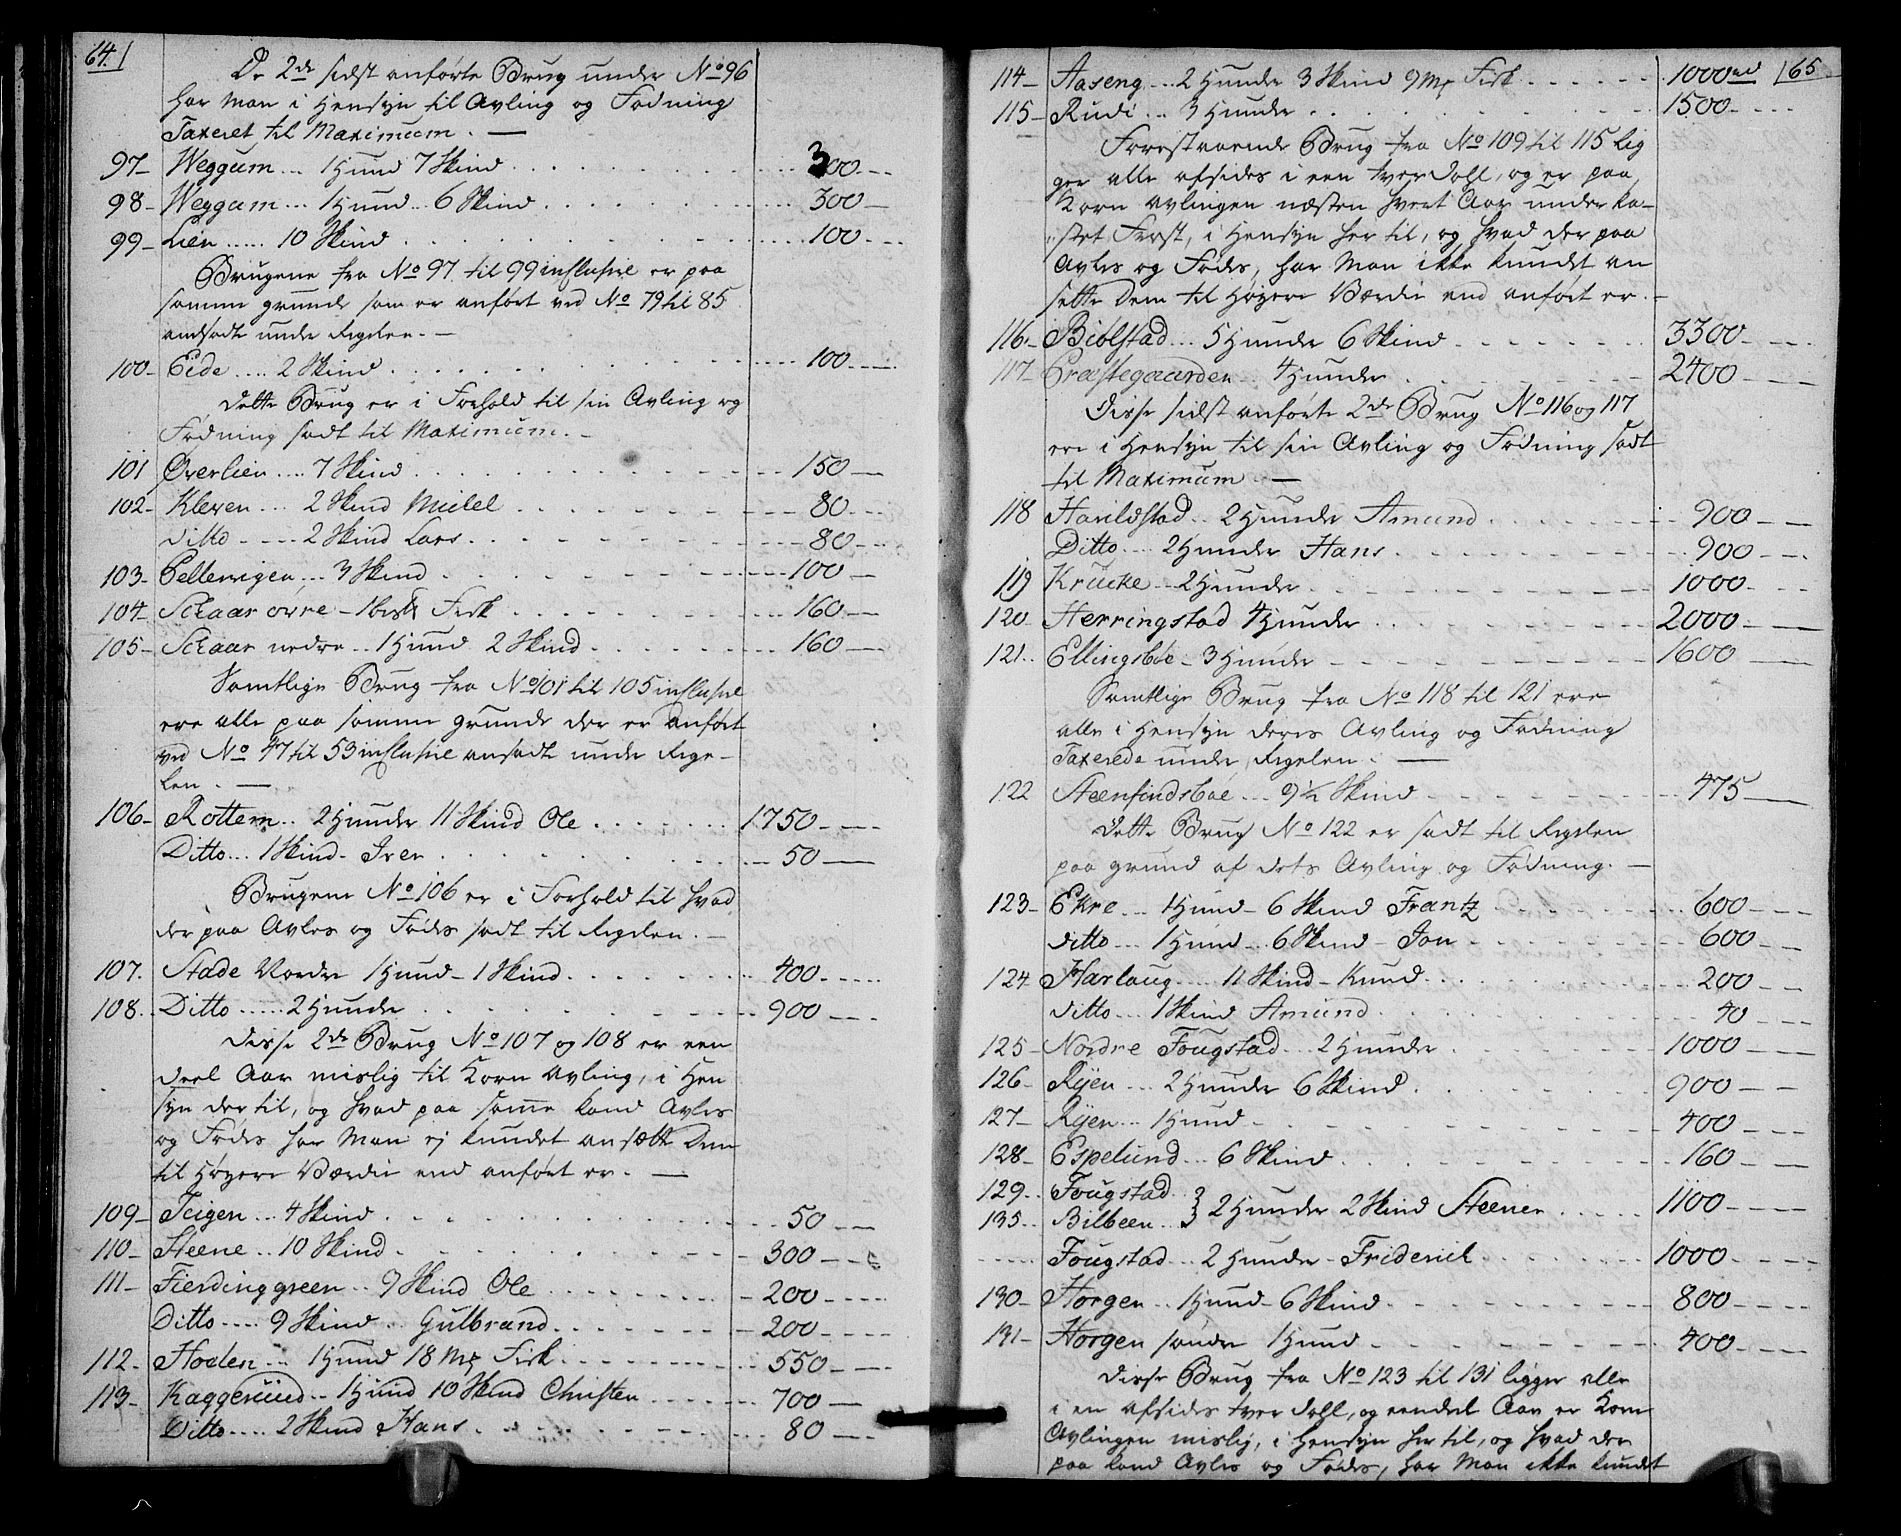 64.
De 2de sidst anførte Brug under No 96
har man i Hensyn til Avling og Fødning
Taxeret til Maximum. —
97- Weggum... 1 Hund 7 Skind ... 300 —
98- Weggum... 1 Hund.. 6 Skind ... 300 —
99- Lien ..... 10 Skind ... 100 —
Brugene fra No 97 til 99 inclusive er paa
samme grunde som er anført ved No 79 til 85
andsadt under Regelen. —
100- Eide .... 2 Skind ... 100 —
Dette Brug er i Forhold til sin Avling og
Fødning sadt til Maximum. —
101 Øverlien .... 7 Skind ... 150 —
102- Kleven ... 2 Skind Mickel ... 80 —
Ditto ---- 2 Skind Lars ... 80 —
103- Pellervigen ... 3 Skind ... 100 —
104- Schaar øvre - 1 bisk Fisk ... 160 —
105- Schaar nedre .. 1 Hund 2 Skind ... 160 —
Samtlige Brug fra No 101 til 105 inclusive
ere alle paa samme grunde der er anført
ved No 47 til 53 inclusive ansadt under Rege-
len. —
106- Rottem .. 2 Hunder 11 Skind Ole ... 1750 —
Ditto ... 1 Skind - Iver ... 50 —
Brugene No 106 er i Forhold til hvad
der paa Avles og Fødes sadt til Regelen. —
107. Stade Nordre 1 Hund - 1 Skind ... 400 —
108. Ditto ..... 2 Hunder ... 900 —
Disse 2de Brug No 107 og 108 er een
deel Aar mislig til Korn Avling, i Hen
syn der til, og hvad paa samme kand Avles
og Fødes har Man ej kundet ansætte Dem
til Høyere Værdie end anført er. —
109- Teigen ... 4 Skind ... 50 —
110- Steene .. 10 Skind ... 300 —
111- Fierdinggreen .. 9 Skind Ole ... 200 —
Ditto .... 9 Skind .. Gulbrand ... 200 —
112- Floden ... 1 Hund 18 Mk Fisk ... 550 —
113- Kaggerud .. 1 Hund 10 Skind Christen ... 700 —
Ditto .... 2 Skind Hans ... 80 —
65
114- Aaseng ... 2 Hunder 3 Skind 9 Mk Fisk ... 1000 rd
115- Rudi ... 3 Hunder ... 1500 —
Forestaaende Brug fra No 109 til 115 lig
ger alle afsides i een tver Dahl, og er paa
Korn Avlingen næsten hvert Aar underka-
stet Frost, i Hensyn her til, og hvad der paa
Avles og Fødes, har Man ikke kundet an
sette Dem til Høyere Værdie end anført er. —
116- Biølstad ... 5 Hunder 6 Skind ... 3300 —
117- Præstegaarden .. 4 Hunder ... 2400 —
Disse sidst anførte 2de Brug No 116 og 117
ere i Hensyn til sin Avling og Fødning sadt
til Maximum. —
118 Harildstad .. 2 Hunder Amund ... 900 —
Ditto .... 2 Hunder Hans ... 900 —
119 Krucke ... 2 Hunder ... 1000 —
120 Herringstad 4 Hunder ... 2000 —
121.. Ellingsbøe - 3 Hunder ... 1600 —
Samtlige Brug fra No 118 til 121 ere
alle i Hensyn deres Avling og Fødning
Taxerede under Regelen. —
122 Steenfindsbøe ... 9½ Skind ... 475 —
Dette Brug No 122 er sadt til Regelen
paa grund af dets Avling og Fødning. —
123- Ekre ... 1 Hund - 6 Skind Frantz ... 600 —
ditto ... 1 Hund ... 6 Skind - Jon ... 600 —
124 Harlaug ..... 11 Skind - Knud ... 200 —
ditto ... 1 Skind Amund ... 40 —
125- Nordre Fougstad ... 2 Hunder ... 1000 —
126- Ryen ... 2 Hunder 6 Skind ... 900 —
127- Ryen ... 1 Hund ... 400 —
128- Espelund ... 6 Skind ... 160 —
129.. Fougstad
135.. Bilbeen .. } 2 Hunder 2 Skind Steener ... 1100 —
Fougstad ... 2 Hunder - Friderich ... 1000 —
130- Horgen .. 1 Hund - 6 Skind ... 800 —
131- Horgen søndre 1 Hund ... 400 —
Disse Brug fra No 123 til 131 ligger alle
i en afsides tver Dahl, og eendeel Aar er Korn
Avlingen mislig, i Hensyn her til, og hvad der
paa kand Avles og Fødes, har Man ikke kundet